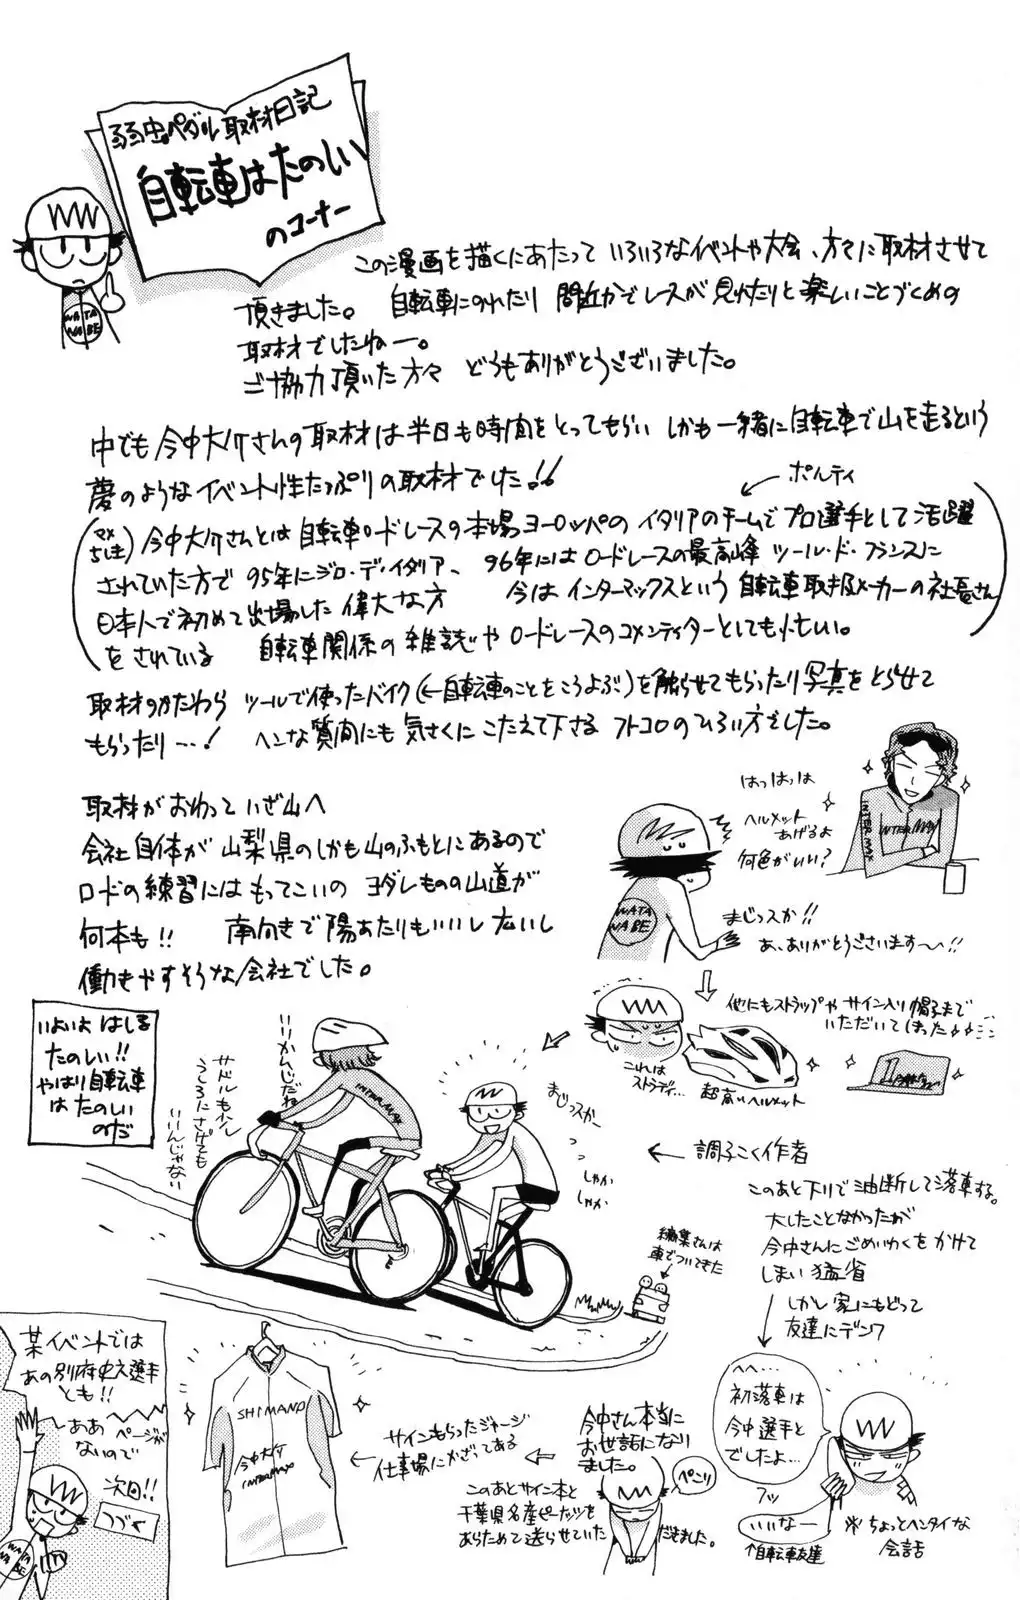 弱虫ペダル取材日記
自転車はたのしい
のコーナー
WATA
NABE
この漫画を描くにあたって いろいろなイベントや大会、方々に取材させて
頂きました。 自転車にのれたり 間近かでレースが見れたりと楽しいことづくめの
取材でしたねー。
ご協力頂いた方々 どうもありがとうございました。
中でも今中大介さんの取材は半日も時間をとってもらい しかも一緒に自転車で山を走るという
夢のようなイベント性たっぷりの取材でした!!
ポルティ
今中大介さんとは自転車ロードレースの本場ヨーロッパのイタリアのチームでプロ選手として活躍
されていた方で 95年にジロ・デ・イタリア、 96年にはロードレースの最高峰 ツール・ド・フランスに
日本人で初めて出場した偉大な方 今はインターマックスという自転車取扱メーカーの社長さん
をされている 自転車関係の雑誌やロードレースのコメンテイターとしても
取材のかたわら ツールで使ったバイク(←自転車のことをこうよぶ)を触らせてもらったり写真をとらせて
もらったり…! ヘンな質問にも気さくにこたえて下さるフトコロのひろい方でした。
取材がおわっていざ山へ
会社自体が山梨県のしかも山のふもとにあるので
ロードの練習にはもってこいのヨダレものの山道が
何本も!! 南向きで陽あたりもいいし広いし
働きやすそうな会社でした。
はっはっは
ヘルメット
あげるよ
何色がいい?
INTERMAX
INTERMAX
WATA
NABE
まじっスか!!
あ、ありがとうございます~!!
他にもストラップやサイン入り帽子まで
いただいてしまった
これは
ストラディ…
超高いヘルメット
いよいよはしる
たのしい!!
やはり自転車
はたのしい
のだ
いいかんじだね
サドルもう少し
うしろにさげても
いいんじゃない
INTERMAX
まじっスカー
しゃか
しゃか
← 調子こく作者
このあと下りで油断して落車する。
大したことなかったが
今中さんにごめいわくをかけて
しまい猛省
しかし家にもどって
友達にデンワ
編集さんは
車でついてきた
へへ…
初落車は
今中選手と
でしたよ…
フッ
いいなー
↑自転車友達
※ちょっとヘンタイな
会話
今中さん本当に
お世話になり
ました。
ペこり
このあとサイン本と
千葉県名産ピーナッツを
あらためて送らせていただきました。
サインもらったジャージ
仕事場にかざってある
SHIMANO
今中大介
INTERMAX
某イベントでは
あの別府史之選手
とも!!
~ああ ページが
ないので
次回!!
つづく
WATA
NABE